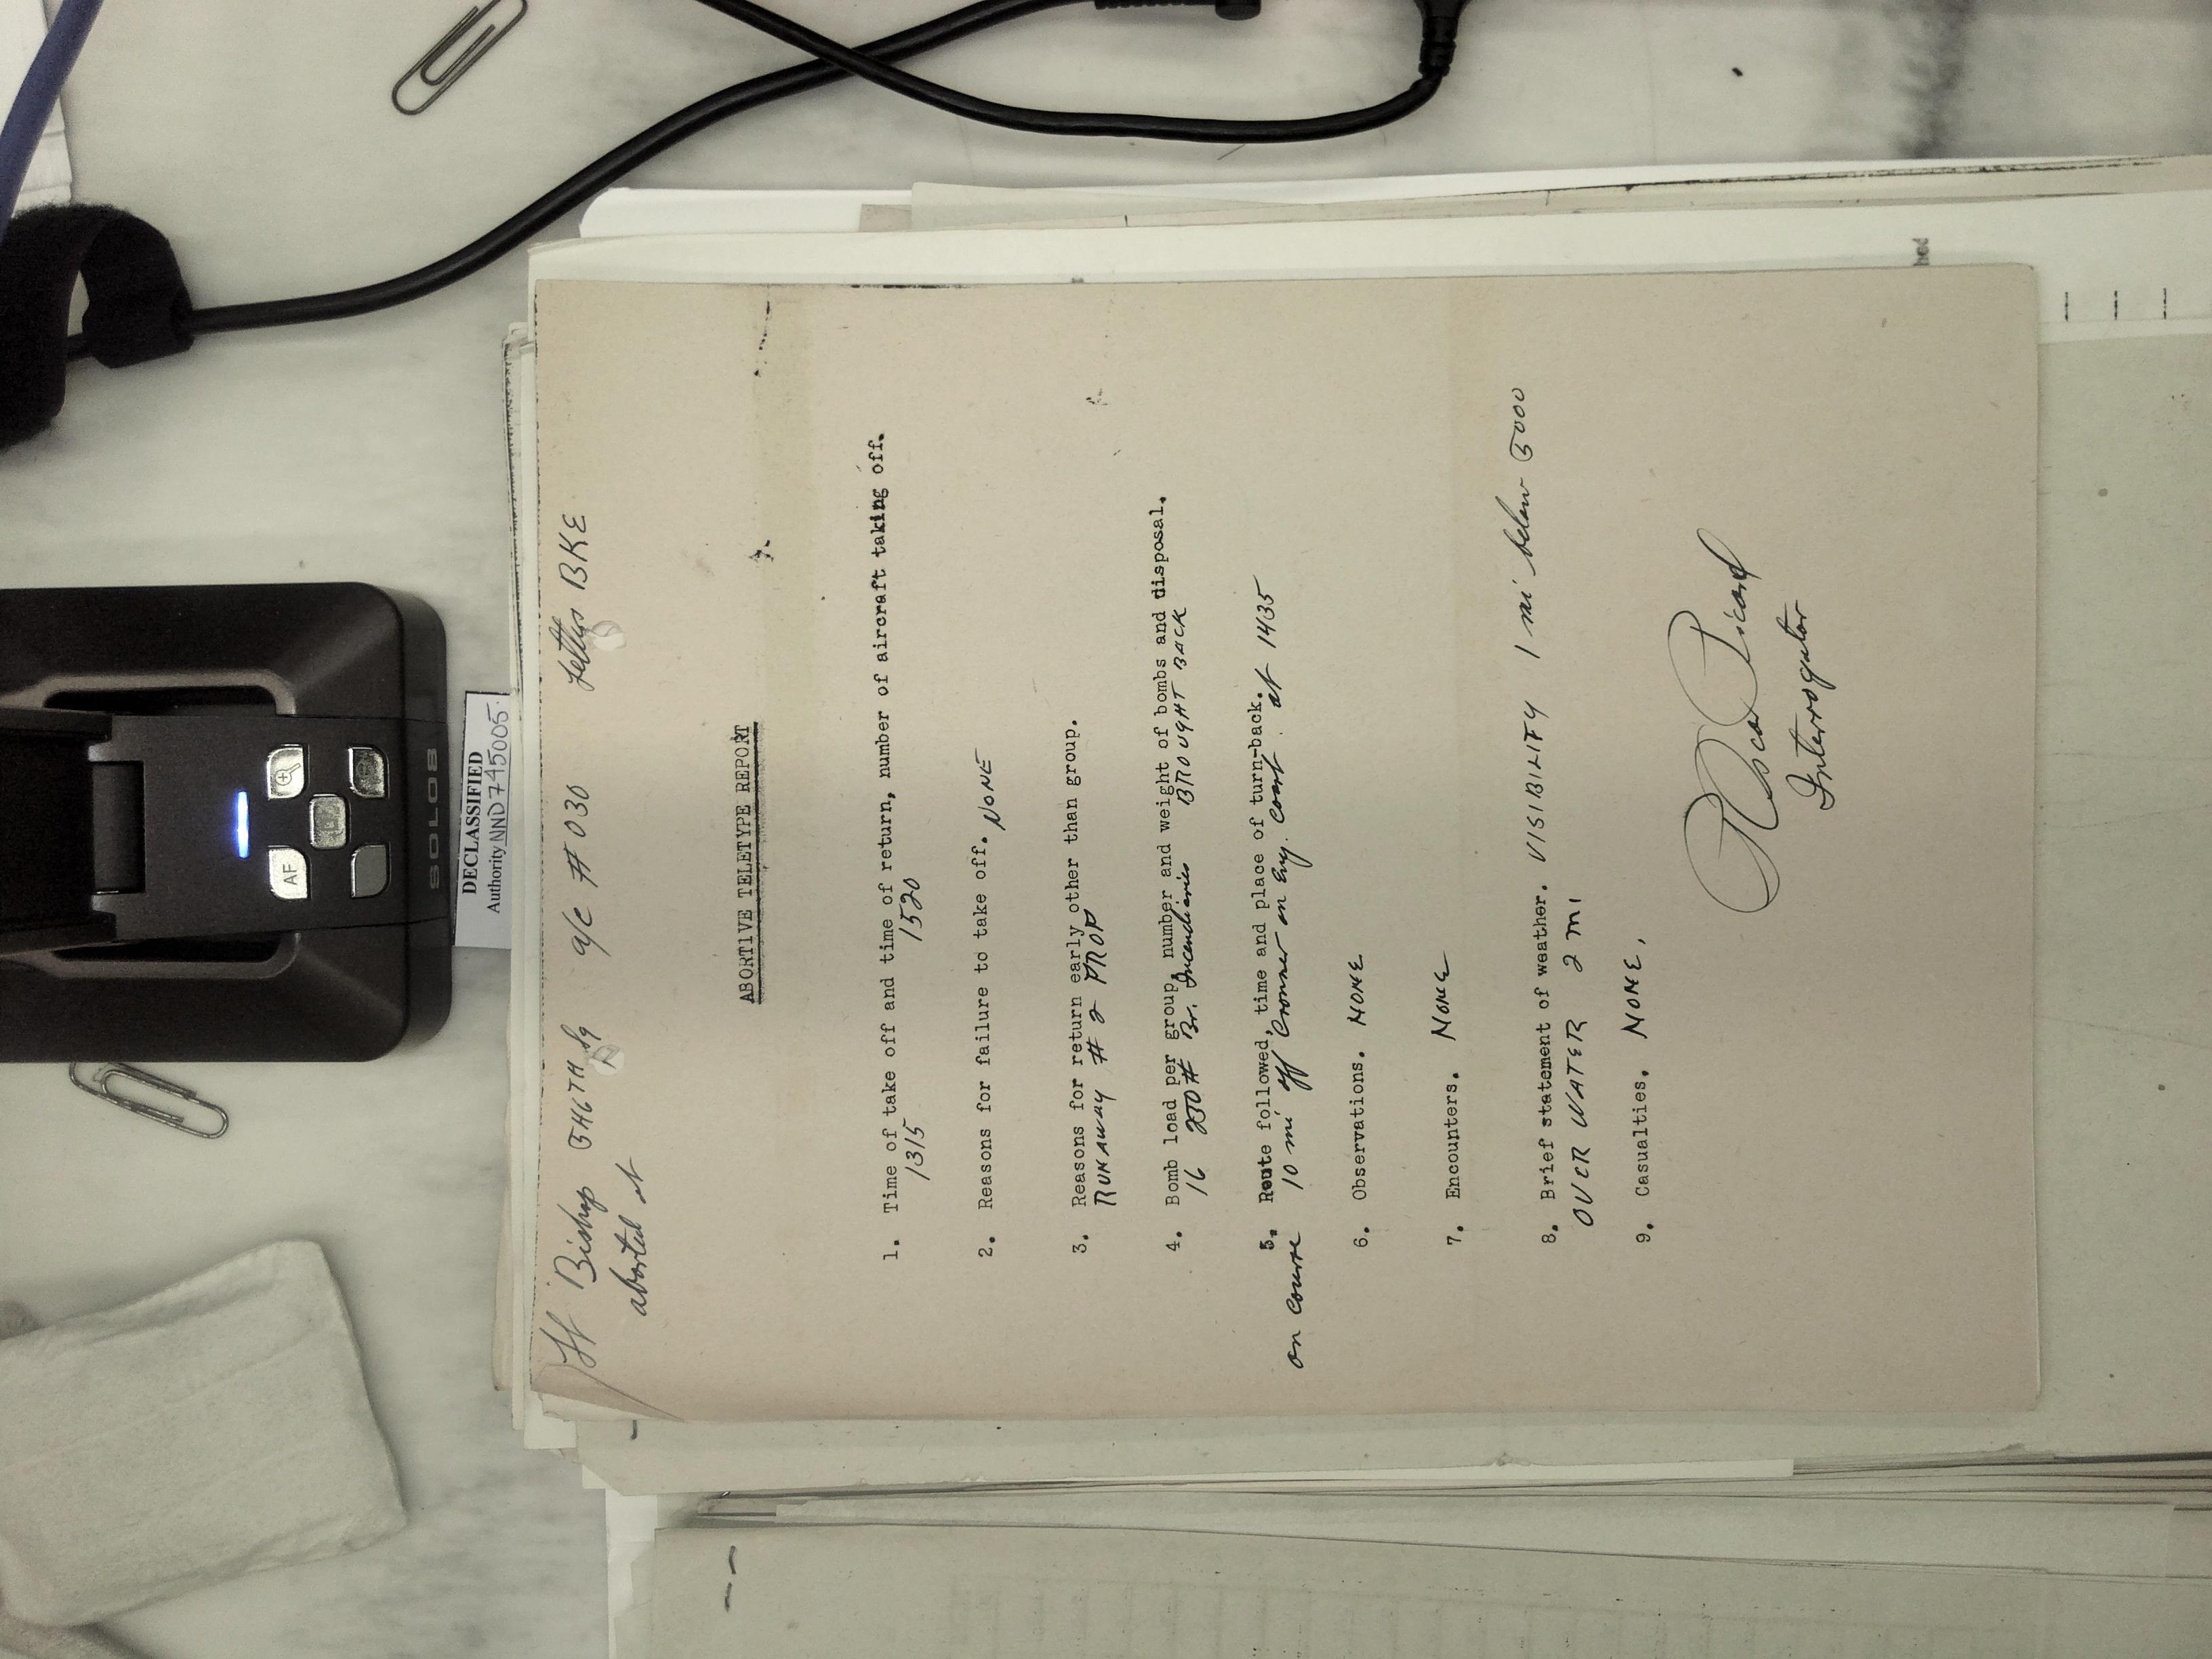 SOLO8
AF
DECLASSIFIED
Authority NND745005
Lt Bishop 546TH Sq a/c # 030 Letters BKE
aborted at
ABORTIVE TELETYPE REPORT
1. Time of take off and time of return, number of aircraft taking off.
1315 1520
2. Reasons for failure to take off. NONE
3. Reasons for return early other than group.
RUNAWAY # 2 PROP
4. Bomb load per group, number and weight of bombs and disposal.
16 250# Br. Incendiaries BROUGHT BACK
5. Route followed, time and place of turn-back.
on course 10 mi off Cromer on Eng. coast. at 1435
6. Observations. NONE
7. Encounters. NONE
8. Brief statement of weather. VISIBILITY 1 mi below 5000
OVER WATER 2 MI
9. Casualties. NONE.
Picard
Interrogator
hed